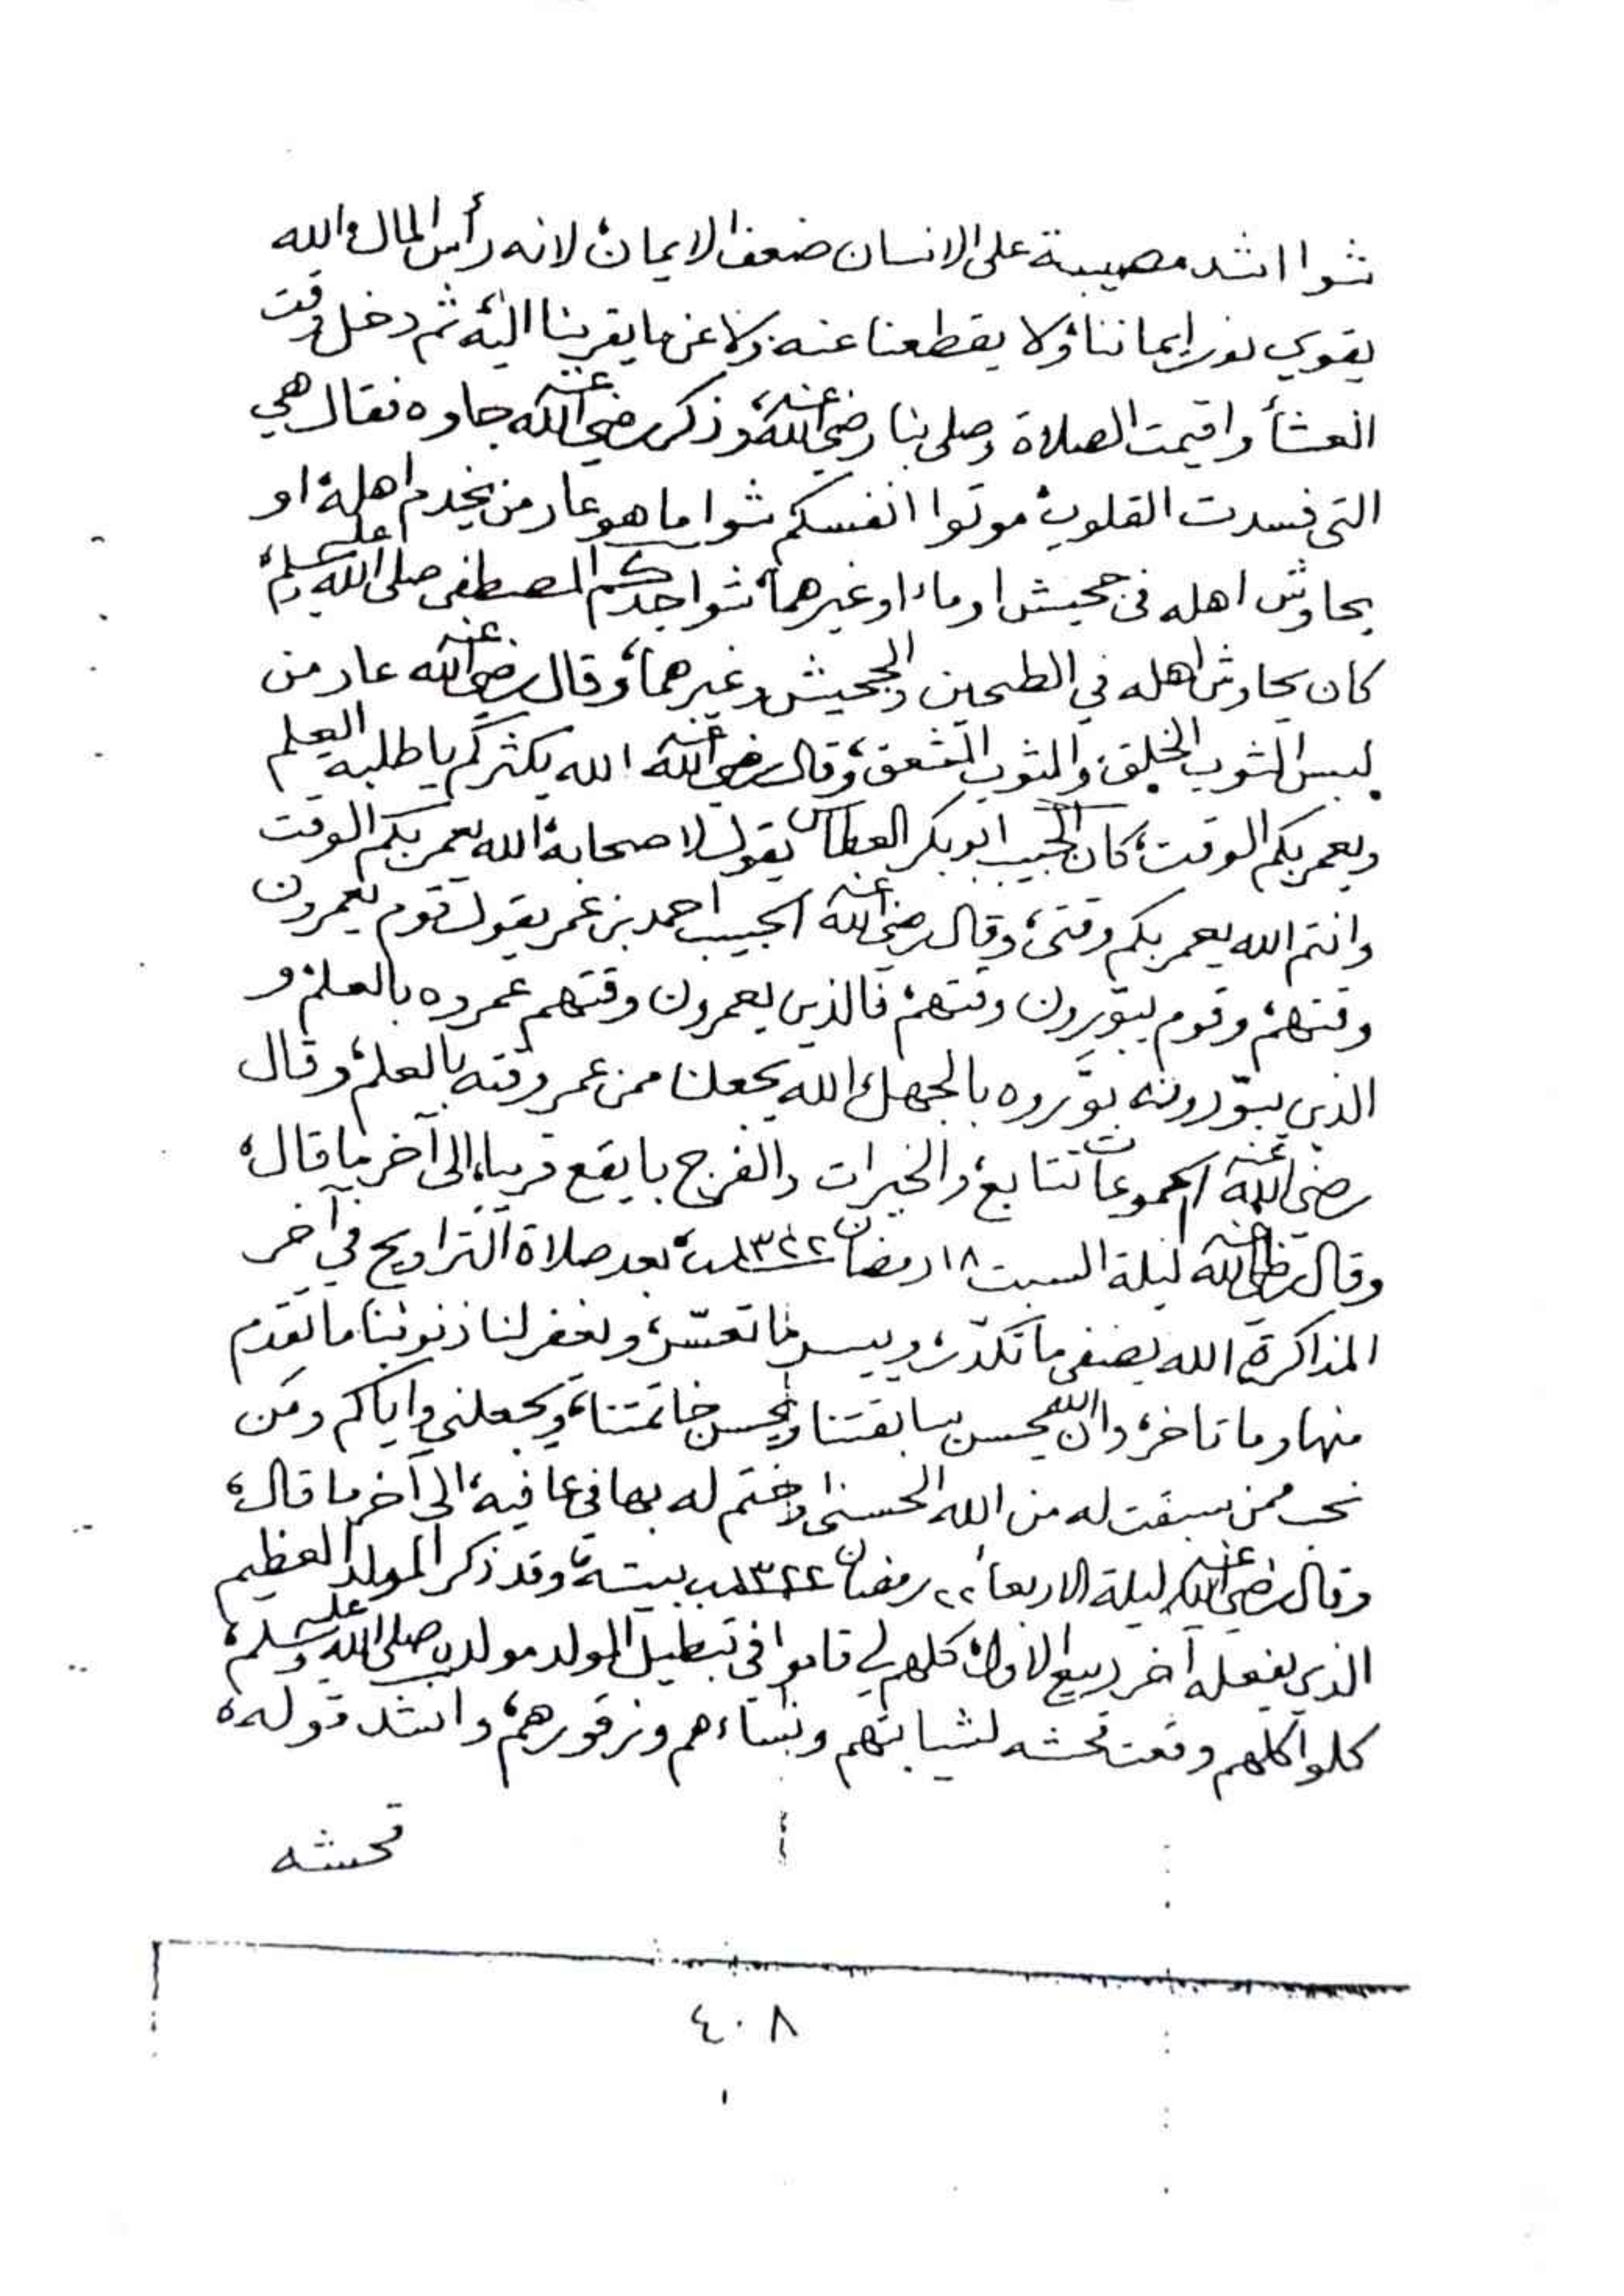 شوا اشد مصيبة على الانسان ضعف الايمان، لانه رأس المال، الله
يقوي نور ايماننا، ولا يقطعنا عنه ولا عن ما يقربنا اليه، ثم دخل وقت
العشأ واقيمت الصلاة وصلى بنا رضي الله عنه، وذكر رضي الله عنه جاوه فقال هي
التي فسدت القلوب، موتوا انفسكم شوا ما هو عار من يخدم اهله، او
يحاوش اهله في جحيش او ماء او غيرهما، شوا جدكم المصطفى صلى الله عليه وسلم،
كان يحاوش اهله في الطحين والجحيش وغيرهما، وقال رضي الله عنه عار من
لبس الثوب الخلق، والثوب المشعق، وقال رضي الله عنه الله يكثركم يا طلبة العلم
ويعمر بكم الوقت، كان الحبيب ابوبكر العطاس يقول لاصحابه، الله يعمر بكم الوقت
وانتم الله يعمر بكم وقتي، وقال رضي الله عنه الحبيب احمد بن عمر يقول قوم يعمرون
وقتهم، وقوم يبوّرون وقتهم، فالذي يعمرون وقتهم عمروه بالعلم، و
الذي يبوّرونه بوّروه بالجهل، الله يجعلنا ممن عمر وقته بالعلم، وقال
رضي الله عنه الجموعات تتابع، والخيرات والفرج با يقع قريبا، الى آخر ما قال،
وقال رضي الله عنه ليلة السبت ١٨ رمضان ١٣٢٢، بعد صلاة التراويح في آخر
المذاكرة، الله يصفي ما تكدّر، وييسر ما تعسّر، ويغفر لنا ذنوبنا ما تقدم
منها وما تاخر، وان الله يحسن سابقتنا ويحسن خاتمتنا، ويجعلني واياكم ومن
نحب ممن سبقت له من الله الحسنى، وختم له بها في عافية، الى آخر ما قال،
وقال رضي الله عنه ليلة الاربعأ ٢٢ رمضان ١٣٢٢ ببيته، وقد ذكر المولد العظيم
الذي يفعله آخر ربيع الاول، كلهم لي قاموا في تبطيل المولد مولده صلى الله عليه وسلم،
كلوا كلهم وقعت قحشه لشيابتهم ونساءهم وزقورهم، وانشد قوله،
قحشه
٤٠٨